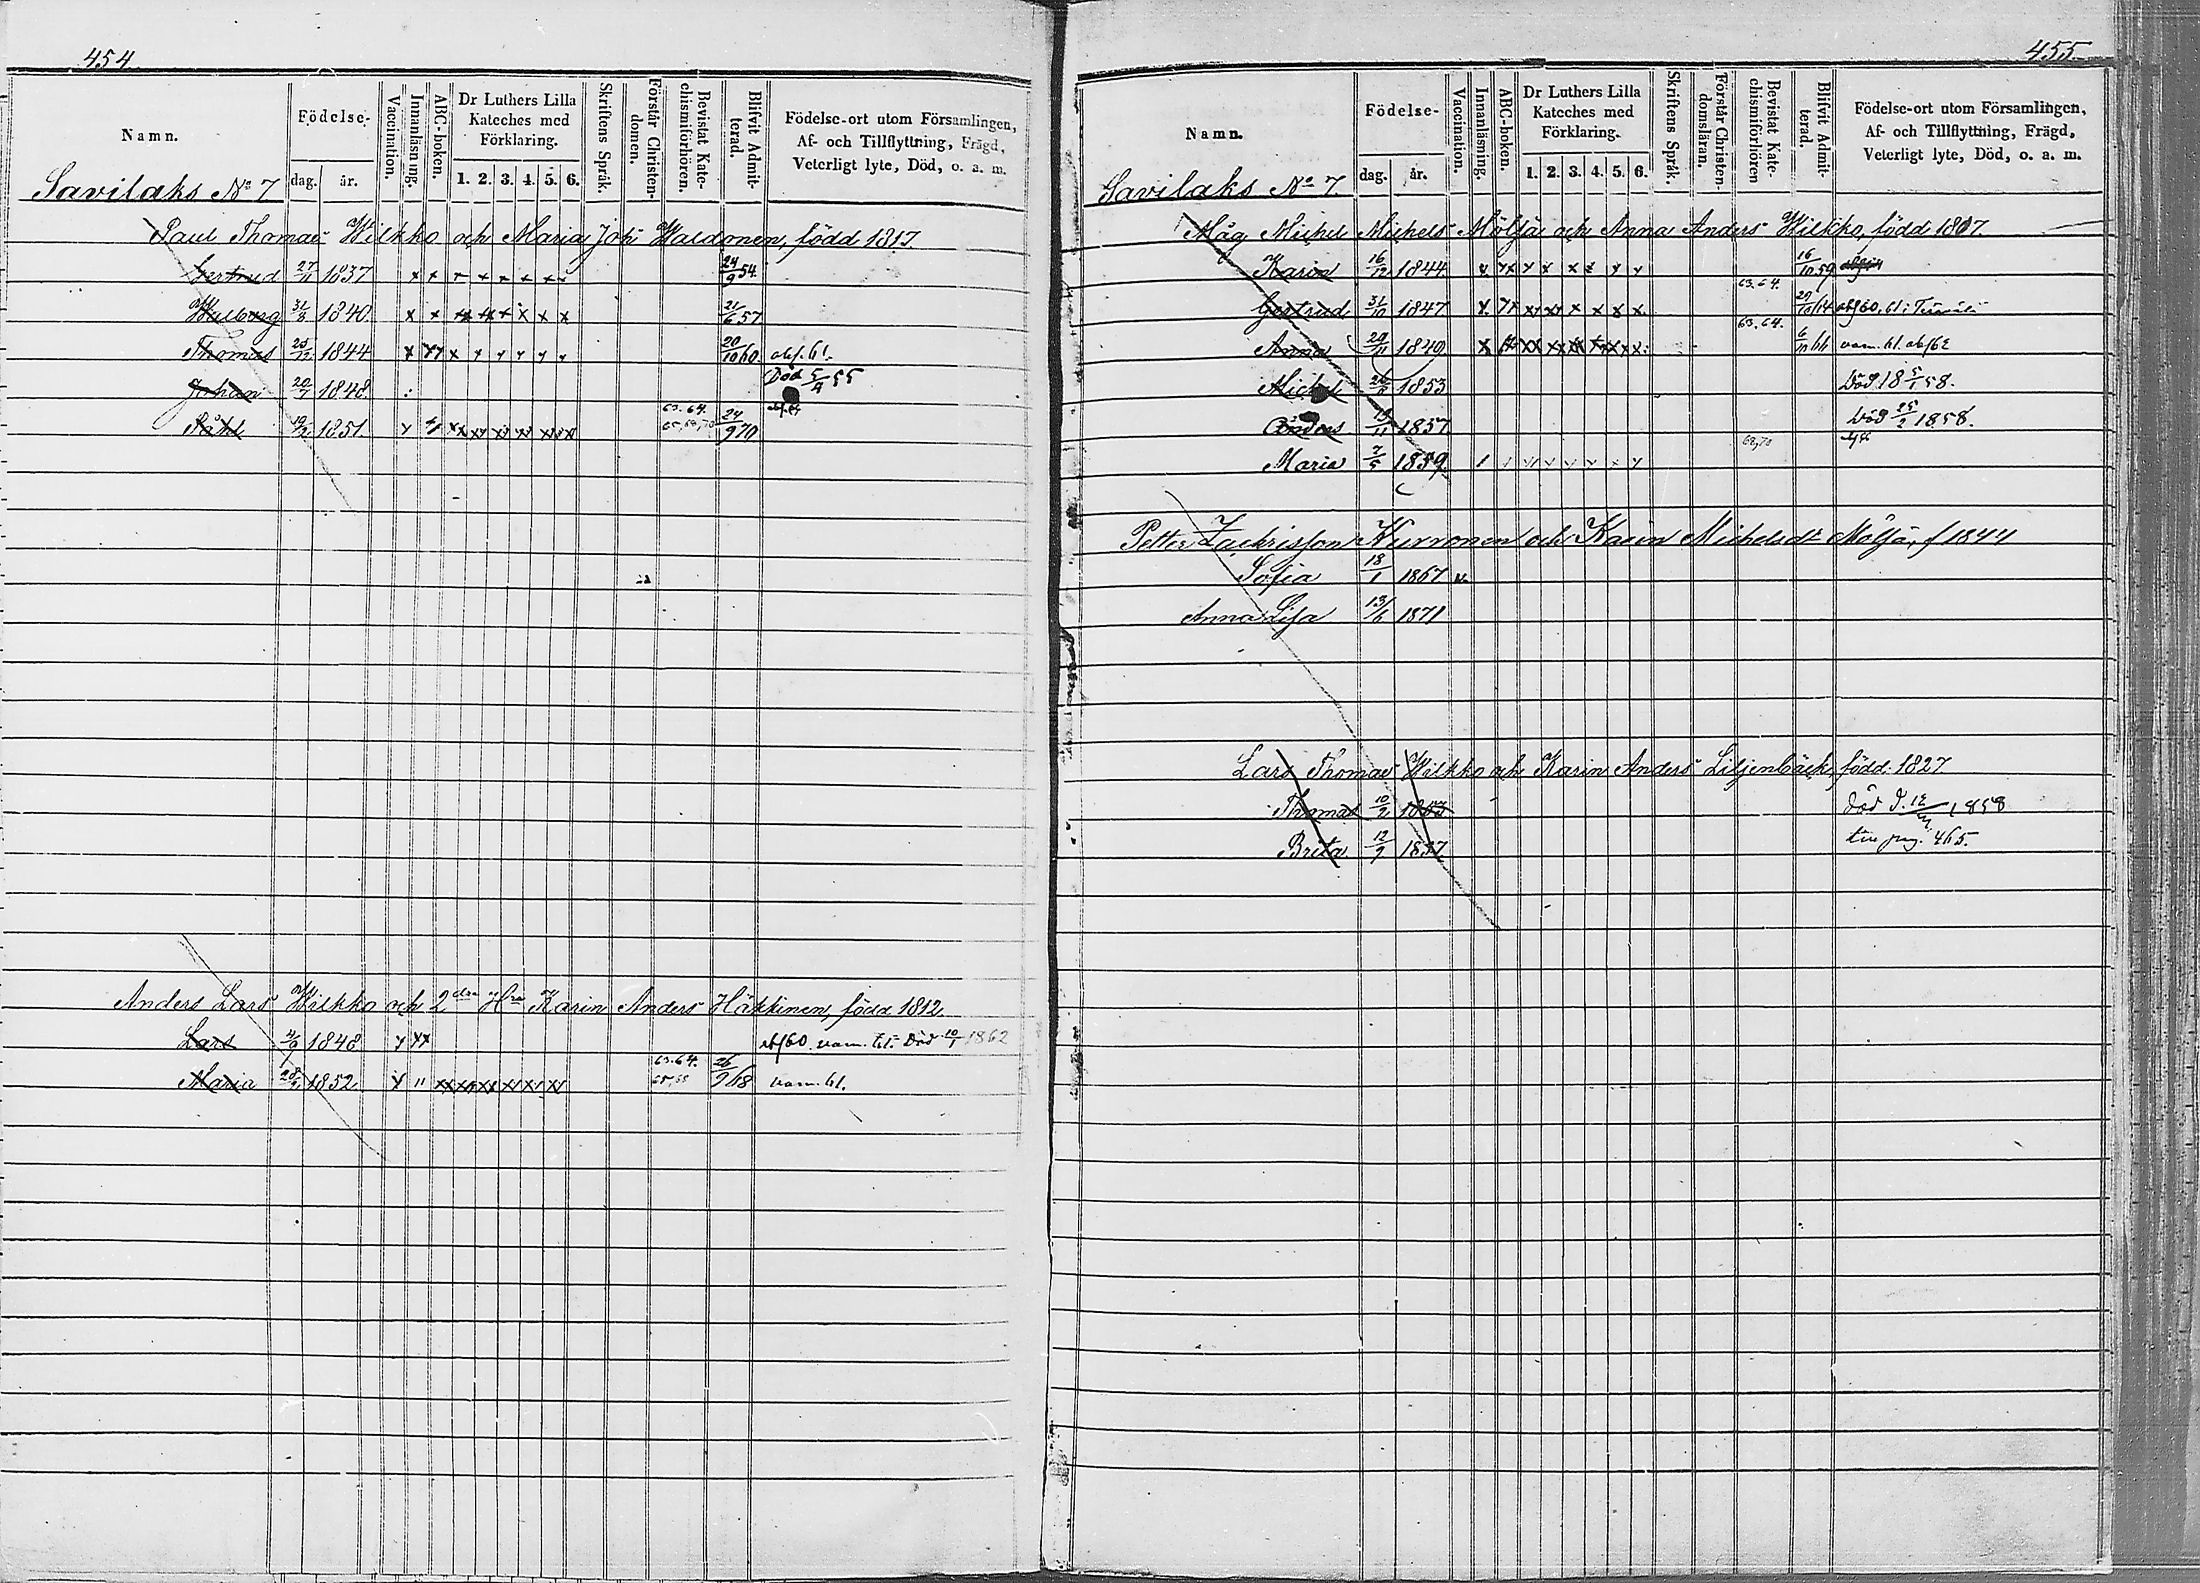 454.
Namn.
Födelse-
dag. år.
Vaccination.
Innanläsning.
ABC-boken.
Dr Luthers Lilla
Kateches med
Förklaring.
1. 2. 3. 4. 5. 6.
Skriftens Språk.
Förstår Christen-
domen.
Bevistat Kate-
chismiförhören.
Blifvit Admit-
terad.
Födelse-ort utom Församlingen,
Af- och Tillflyttning, Frägd,
Veterligt lyte, Död, o. a. m.
Savilaks No 7
Paul Thomas Wilkko och Maria Joh: Waldonen, född 1817.
Gertrud 27/11 1837 24/9 54.
Walborg 31/8 1840. 21/6 57
Thomas 25/12 1844 20/10 60. abf. 61.
Johan 20/7 1848. Död 5/4 55
Påhl 19/2 1851. 63.64. 24/9 70
Anders Lars Wilkko och 2dra Hru Karin Anders Häkkinen, född 1812.
Lars 4/6 1848 abf60. vam. 61. Död 10/1 1862
Maria 1852. 63.64. 26/9 68 vam. 61.
455.
Namn.
Födelse-
dag. år.
Vaccination.
Innanläsning.
ABC-boken.
Dr Luthers Lilla
Kateches med
Förklaring.
1. 2. 3. 4. 5. 6.
Skriftens Språk.
Förstår Christen-
domsläran.
Bevistat Kate-
chismiförhören
Blifvit Admit-
terad.
Födelse-ort utom Församlingen,
Af- och Tillflyttning, Frägd,
Veterligt lyte, Död, o. a. m.
Savilaks No 7.
Måg Michel Michels Möljä och Anna Anders Wilkko, född 1807.
Karin 16/12 1844 16/10 59
Gertrud 31/10 1847 63.64. abf60. 61:
Anna 29/11 1849. 63.64. 6/10 66 vam. 61. abf62
Michel 1853 Död 18 5/1 58.
Anders 13/11 1857 Död 25/2 1858.
Maria 7/5 1859. 68,70
Petter Zachrisson Kurronen och Karin Michelsdr Möljä, f 1844
Sofia 18/1 1867 v.
Anna Lisa 13/6 1871
Lars Thomas Wilkko och Karin Anders Liljenbäck, född: 1827.
Thomas 10/2 1853 Död d. 1858
Brita 12/9 1857 pag. 465.